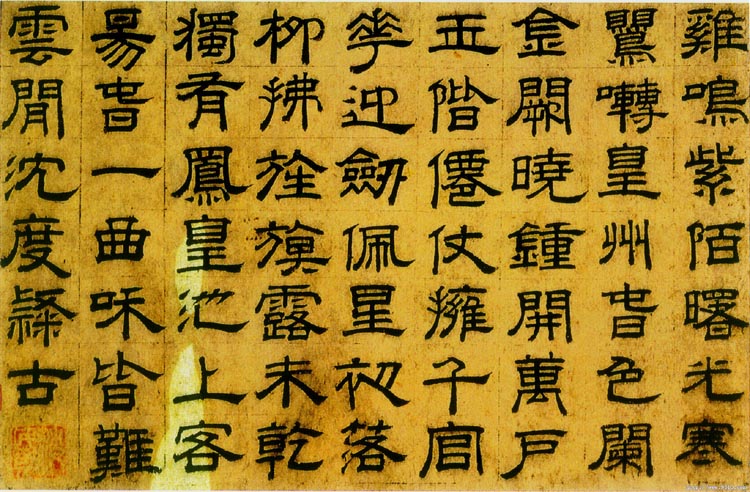 雞鳴紫陌曙光寒
鸎囀皇州旾色闌
金闕曉鍾開萬戶
玉階僊仗擁千官
花迎劒佩星初落
柳拂旌旗露未乾
獨有鳳皇池上客
昜旾一曲咊皆難
雲閒沈度隸古